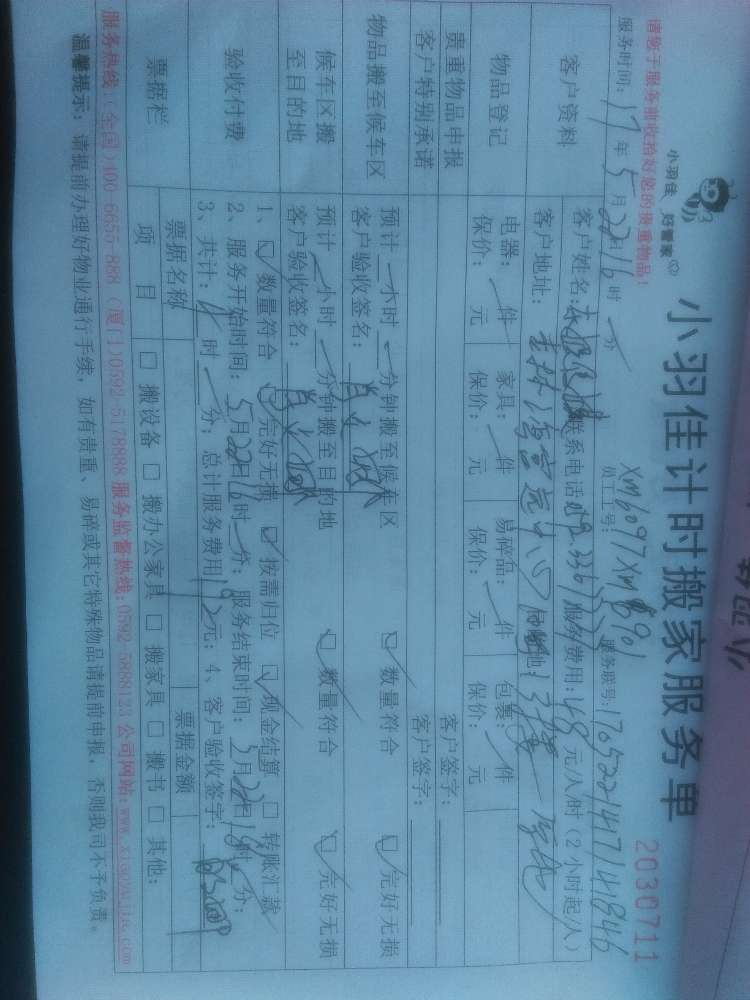 小羽佳 好管家
小羽佳计时搬家服务单
2030711
请您于服务前收拾好您的贵重物品!
服务时间: 17 年 5 月 22 日 16 时 分 员工工号: XM6097 XM8901 服务联号: 170522141714846
客户资料
客户姓名: 联系电话 服务费用: 48 元/人/时 (2小时起/人)
客户地址: 中心
物品登记
电器: 件 家具: 件 易碎品: 件 包裹: 件
保价: 元 保价: 元 保价: 元 保价: 元
贵重物品申报 客户签字:
客户特别承诺 客户签字:
物品搬至候车区
预计 小时 分钟搬至候车区
客户验收签名: 数量符合 完好无损
候车区搬至目的地
预计 小时 分钟搬至目的地
客户验收签名: 数量符合 完好无损
验收付费
1、 数量符合 完好无损 按需归位 现金结算 转账汇款
2、服务开始时间: 5 月 22 日 16 时 分; 服务结束时间: 5 月 22 日 18 时 分;
3、共计: 4 时 分; 总计服务费用 192 元; 4、客户验收签字:
票据栏
票据名称 票据金额
项 目 搬设备 搬办公家具 搬家具 搬书 其他:
服务热线(全国)400-6655-888 (厦门)0592-5178888 服务监督热线:0592-5888123 公司网站:www.xiaoyujia.com
温馨提示: 请提前办理好物业通行手续, 如有贵重、易碎或其它特殊物品请提前申报, 否则我司不予负责。